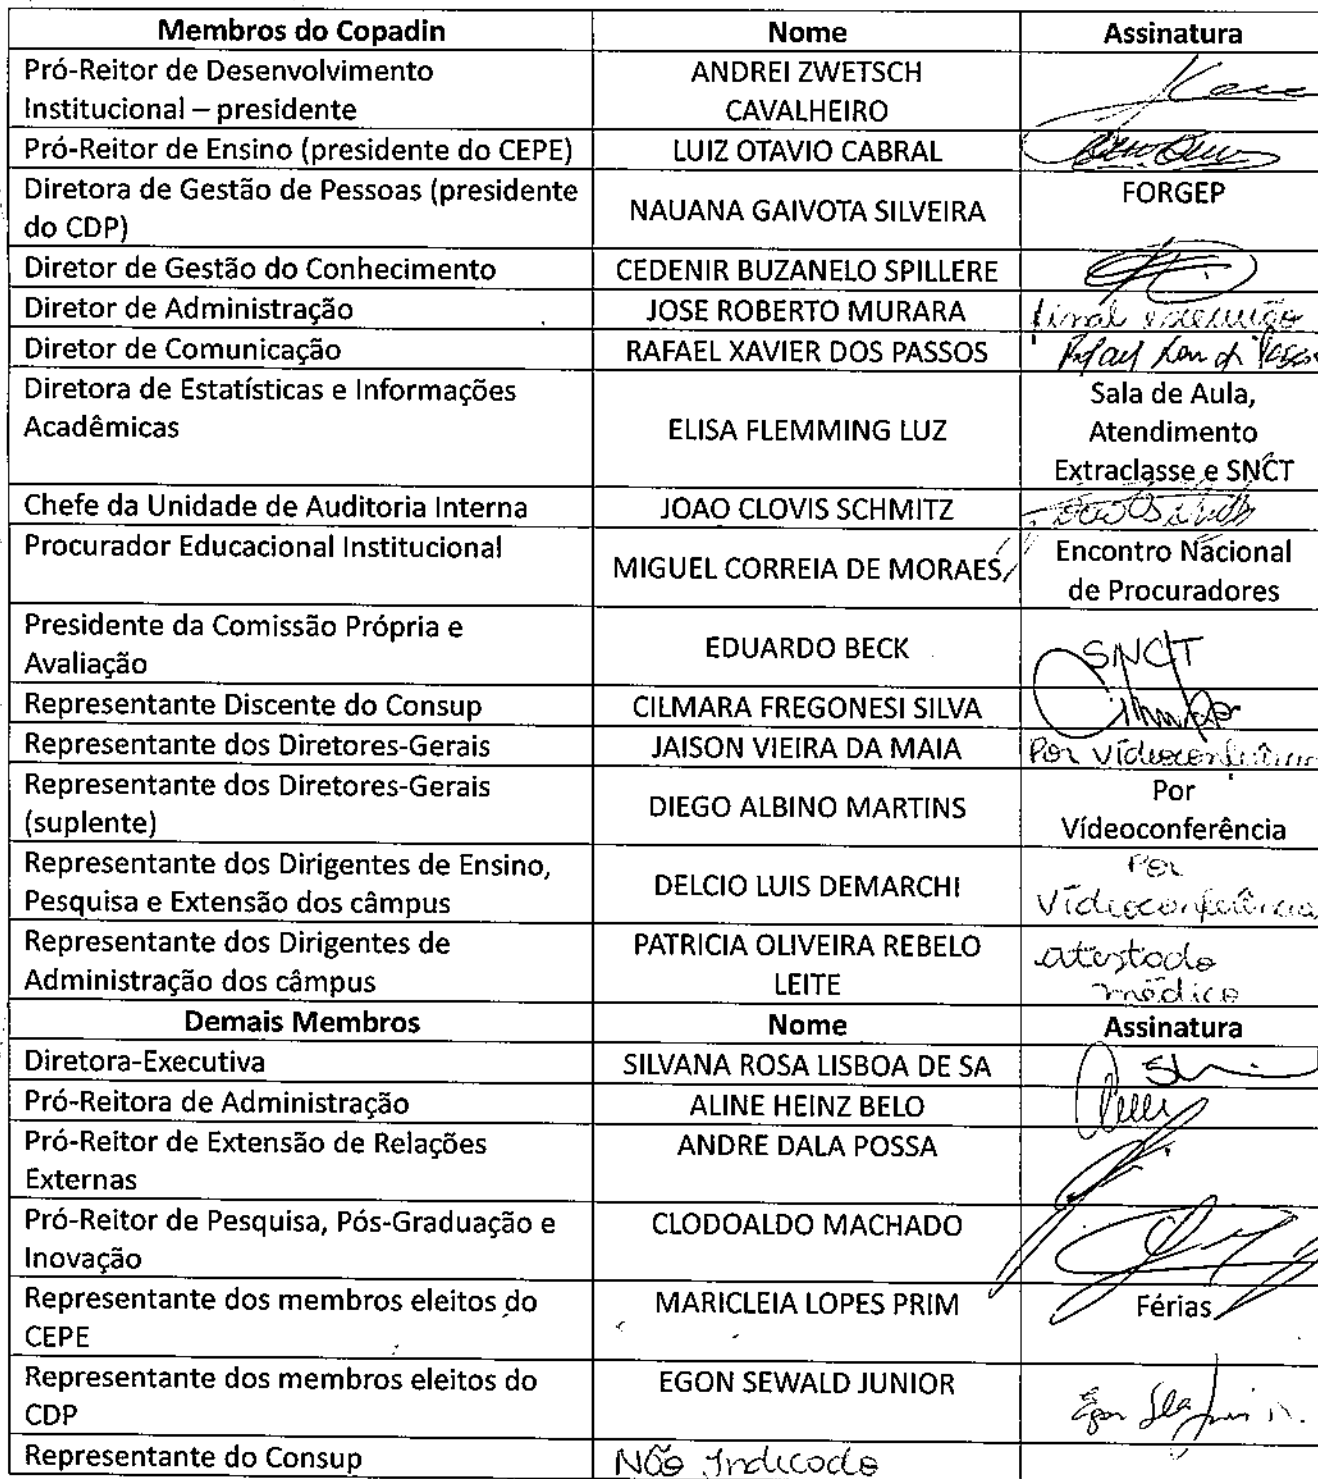 Membros do Copadin Nome Assinatura
Pró-Reitor de Desenvolvimento
Institucional – presidente
ANDREI ZWETSCH
CAVALHEIRO
Pró-Reitor de Ensino (presidente do CEPE) LUIZ OTAVIO CABRAL
Diretora de Gestão de Pessoas (presidente
do CDP)
NAUANA GAIVOTA SILVEIRA
FORGEP
Diretor de Gestão do Conhecimento CEDENIR BUZANELO SPILLERE
Diretor de Administração JOSE ROBERTO MURARA final
Diretor de Comunicação RAFAEL XAVIER DOS PASSOS
Diretora de Estatísticas e Informações
Acadêmicas
ELISA FLEMMING LUZ
Sala de Aula,
Atendimento
Extraclasse e SNCT
Chefe da Unidade de Auditoria Interna JOAO CLOVIS SCHMITZ
Procurador Educacional Institucional
MIGUEL CORREIA DE MORAES
Encontro Nacional
de Procuradores
Presidente da Comissão Própria e
Avaliação
EDUARDO BECK
SNCT
Representante Discente do Consup CILMARA FREGONESI SILVA
Representante dos Diretores-Gerais JAISON VIEIRA DA MAIA Por vídeoconferência
Representante dos Diretores-Gerais
(suplente)
DIEGO ALBINO MARTINS
Por
Vídeoconferência
Representante dos Dirigentes de Ensino,
Pesquisa e Extensão dos câmpus
DELCIO LUIS DEMARCHI
Por
Vídeoconferência
Representante dos Dirigentes de
Administração dos câmpus
PATRICIA OLIVEIRA REBELO
LEITE
atestado
médico
Demais Membros Nome Assinatura
Diretora-Executiva SILVANA ROSA LISBOA DE SA
Pró-Reitora de Administração ALINE HEINZ BELO
Pró-Reitor de Extensão de Relações
Externas
ANDRE DALA POSSA
Pró-Reitor de Pesquisa, Pós-Graduação e
Inovação
CLODOALDO MACHADO
Representante dos membros eleitos do
CEPE
MARICLEIA LOPES PRIM
Férias
Representante dos membros eleitos do
CDP
EGON SEWALD JUNIOR
Representante do Consup Não Indicado